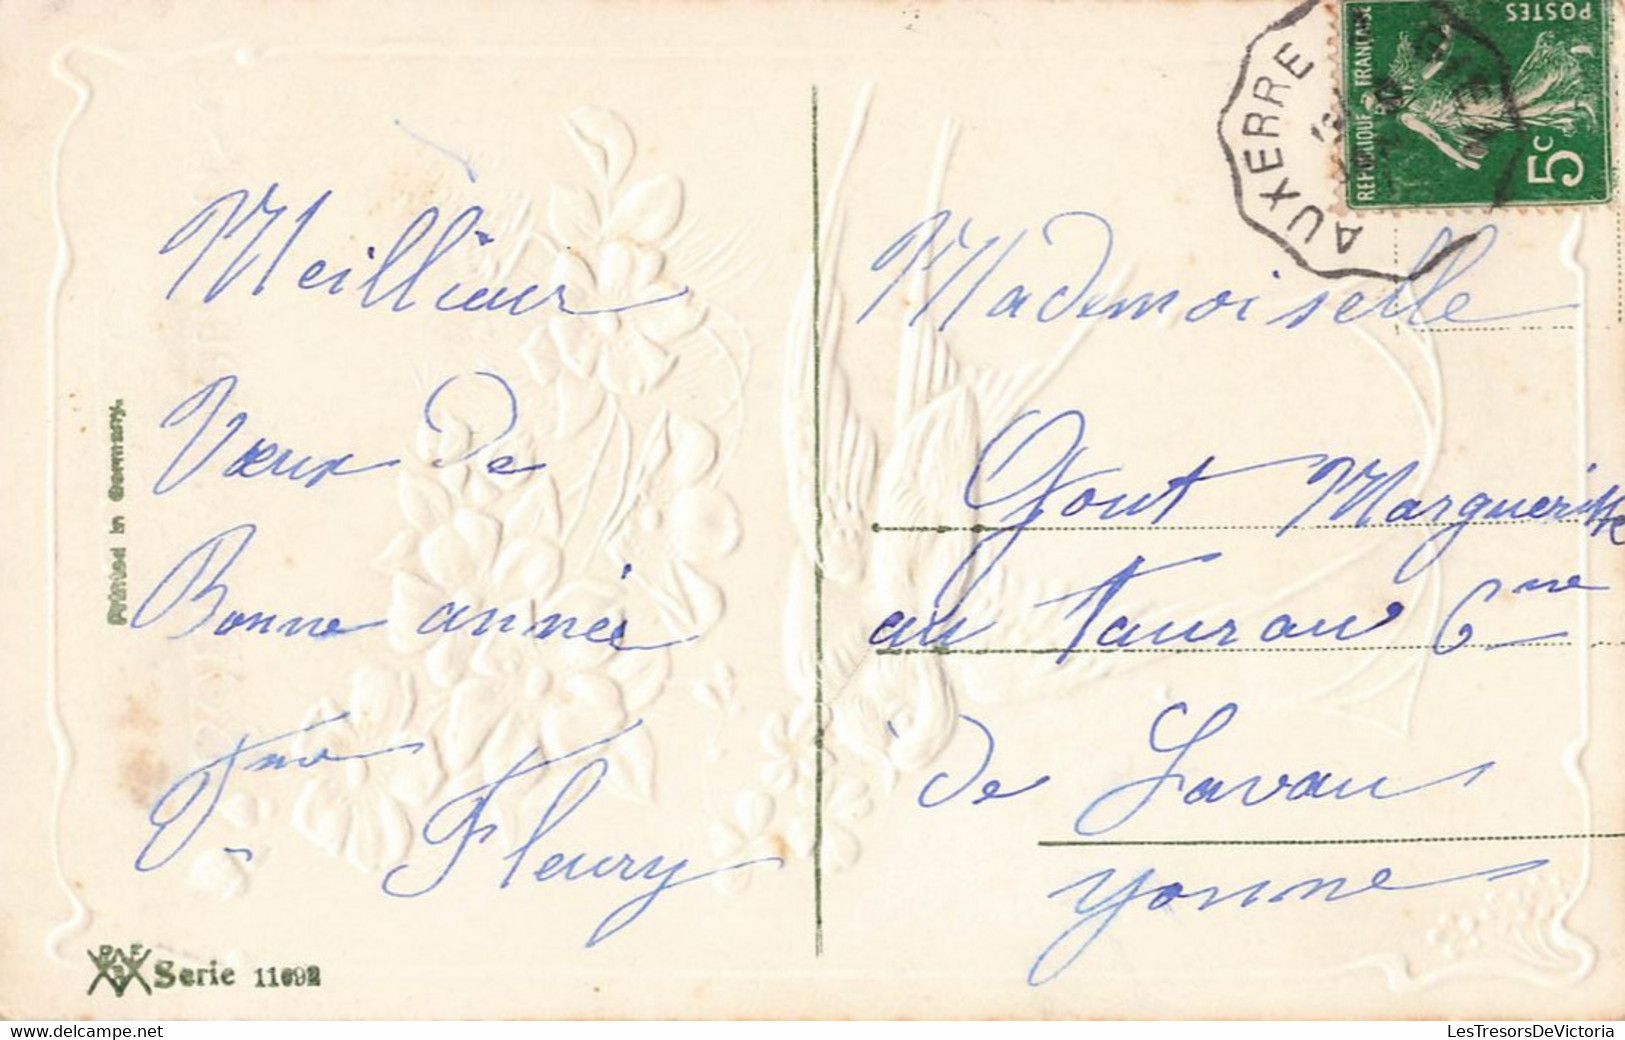 Meilleur
Vœux de
Bonne année
Fleury
Printed in Germany.
Serie 11692
AUXERRE
GIEN
POSTES
REPUBLIQUE FRANÇAISE
5c
Mademoiselle
Gout Marguerite
au Taurau Cne
de Lavau
yonne
www.delcampe.net
LesTresorsDeVictoria